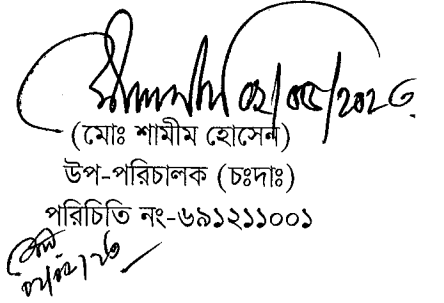 ০২/০৫/২০২৩
(মোঃ শামীম হোসেন)
উপ-পরিচালক (চঃদাঃ)
পরিচিতি নং-৬৯১২১১০০১